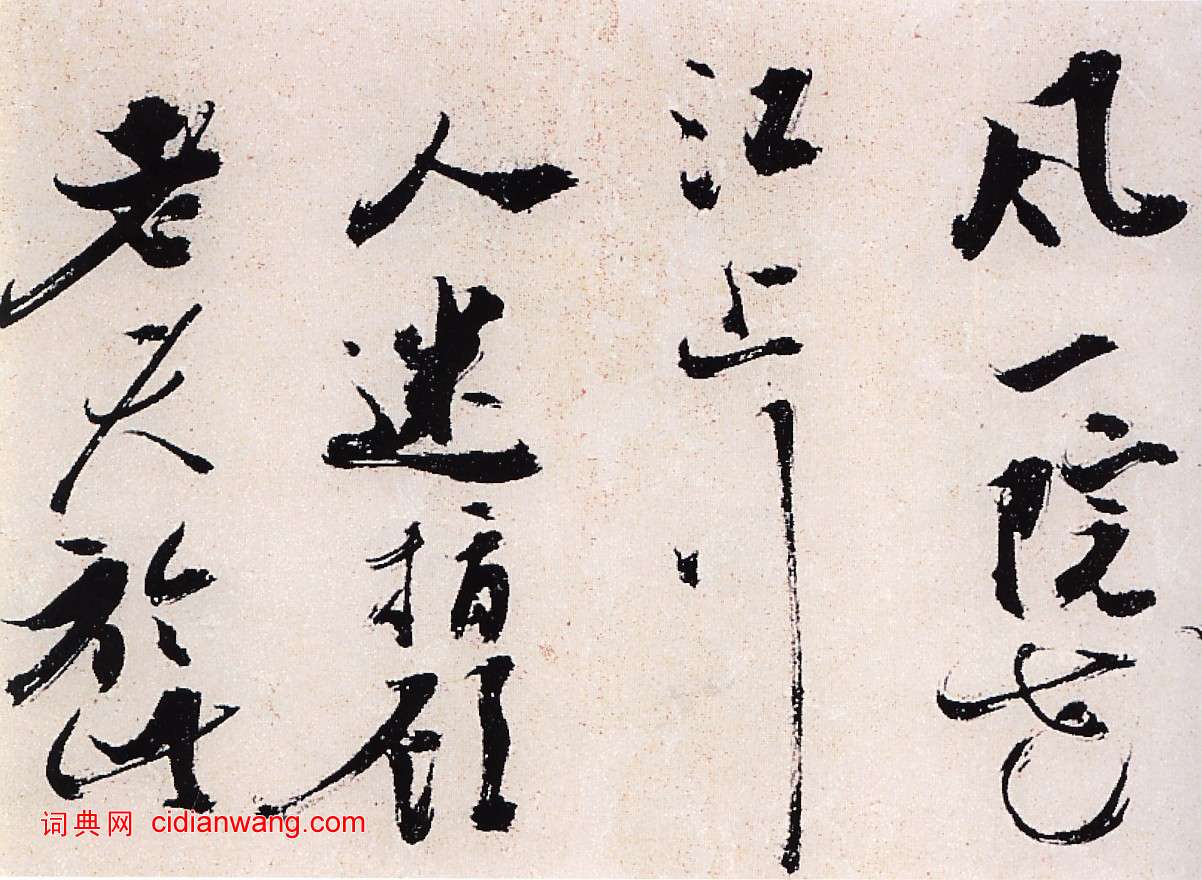 風一院
江上
人迷指顧
老夫於此
词典网 cidianwang.com